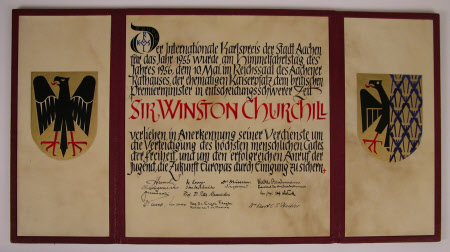 Der Internationale Karlspreis der Stadt Aachen
für das Jahr 1955 wurde am Himmelfahrtstag des
Jahres 1956, dem 10. Mai, im Reichssaal des Aachener
Rathauses, der ehemaligen Kaiserpfalz dem britischen
Premierminister in entscheidungsschwerer Zeit
SIR WINSTON CHURCHILL
verliehen in Anerkennung seiner Verdienste um
die Verteidigung des höchsten menschlichen Gutes,
der Freiheit, und um den erfolgreichen Anruf der
Jugend, die Zukunft Europas durch Einigung zu sichern